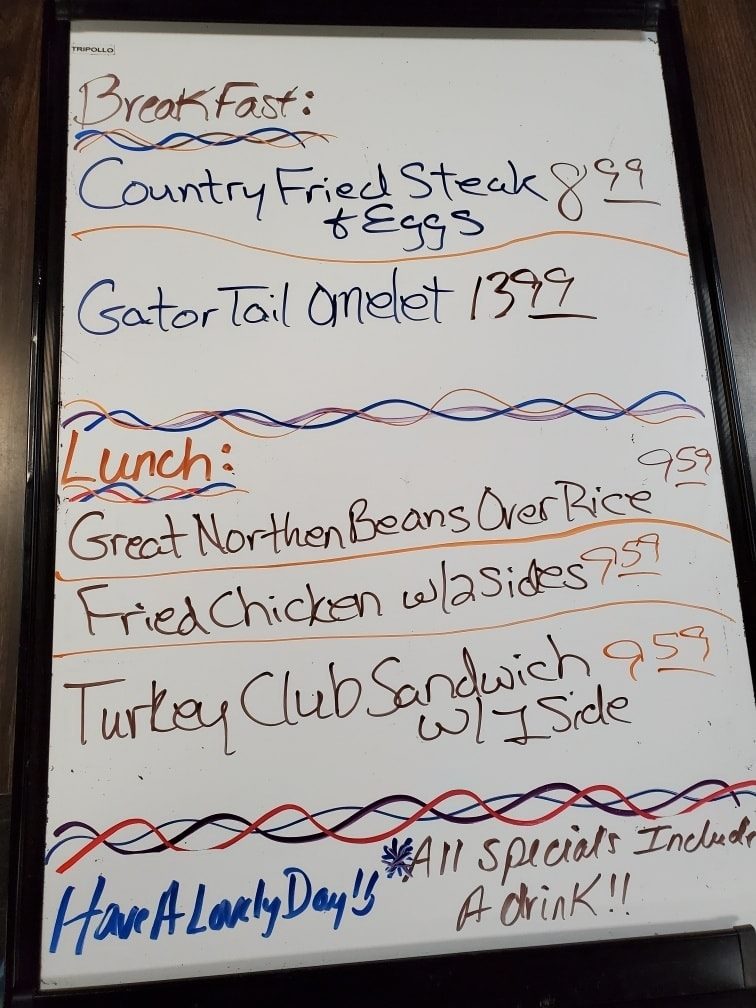 TRIPOLLO
BreakFast:
Country Fried Steak 8 99
+ Eggs
Gator Tail Omelet 13 99
Lunch:
Great Northen Beans Over Rice 9 59
Fried Chicken w/2 Sides 9 59
Turkey Club Sandwich 9 59
w/1 Side
*All Specials Include
A drink!!
Have A Lovely Day!!